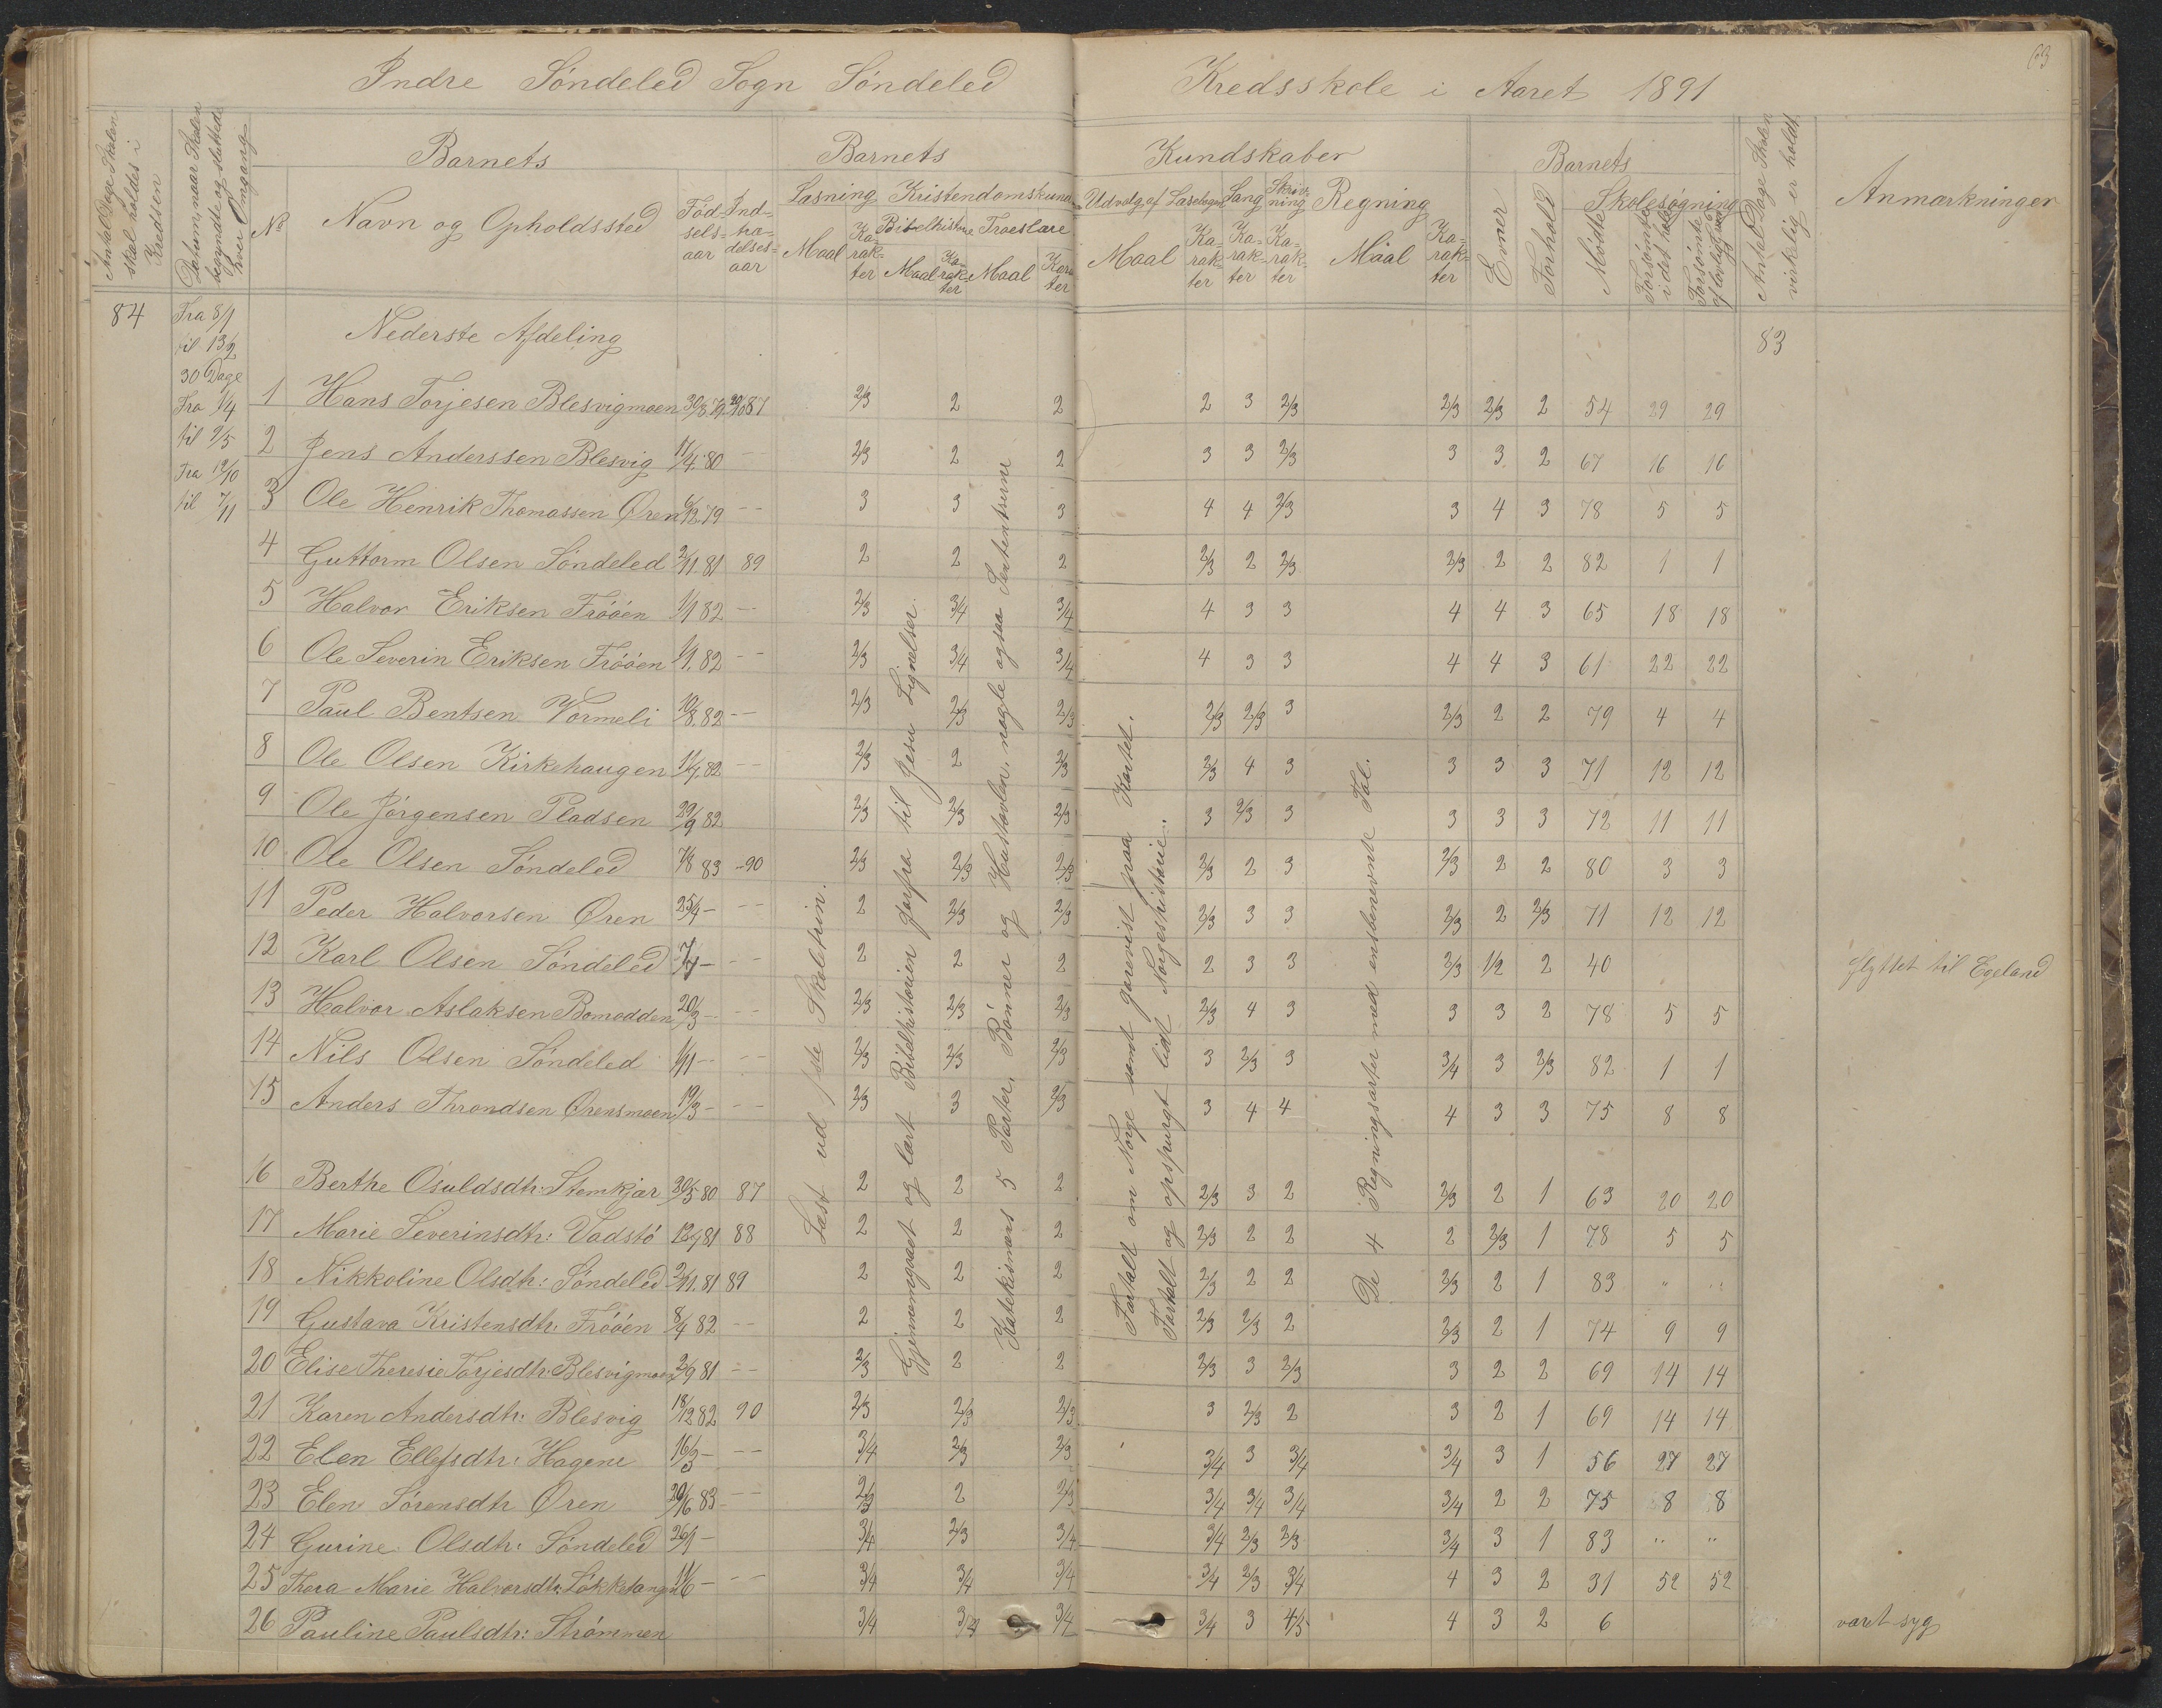 63
Indre Söndeled Sogn Söndeled Kredsskole i Aaret 1891
Antal Dage Skolen skal holdes i Kredsen
Datum, naar Skolen begyndte og sluttede hver Omgang
No
Barnets
Navn og Opholdssted
Födselsaar
Indtrædelsesaar
Barnets Kundskaber
Læsning
Maal
Karakter
Kristendomskund
Bibelhistorie
Maal
Karakter
Troeslære
Maal
Karakter
Udvalg af Læsebogen
Maal
Karakter
Sang
Karakter
Skrivning
Karakter
Regning
Maal
Karakter
Barnets
Evner
Forhold
Skolesøgning
Mödte
Forsömte i det hele
Forsömte af lovlig
Antal Dage Skolen virkelig er holdt
Anmærkninger
84
Fra 8/1
til 13/2
30 Dage
Fra 1/4
til 9/5
Fra 12/10
til 7/11
Nederste Afdeling
83
1 Hans Torjesen Blesvigmoen 30/8 79 29/10 87 2/3 2 2 2 3 2/3 2/3 2/3 2 54 29 29
2 Jens Anderssen Blesvig 11/4 80 — 2/3 2 2 3 3 2/3 3 3 2 67 16 16
3 Ole Henrik Thomassen Øren 6/12 79 -- 3 3 3 4 4 2/3 3 4 3 78 5 5
4 Guttorm Olsen Söndeled 2/11 81 89 2 2 2 2/3 2 2/3 2/3 2 2 82 1 1
5 Halvor Eriksen Frööen 1/1 82 -- 2/3 3/4 3/4 4 3 3 4 4 3 65 18 18
6 Ole Severin Eriksen Frööen 1/1 82 -- 2/3 3/4 3/4 4 3 3 4 4 3 61 22 22
7 Paul Bentsen Vormeli 10/8 82 -- 2/3 2/3 2/3 2/3 2/3 3 2/3 2 2 79 4 4
8 Ole Olsen Kirkehaugen 11/7 82 -- 2/3 2 2/3 2/3 4 3 3 3 3 71 12 12
9 Ole Jörgensen Pladsen 29/9 82 2/3 2/3 2/3 3 2/3 3 3 3 3 72 11 11
10 Ole Olsen Söndeled 7/8 83 -90 2/3 2/3 2/3 2/3 2 3 2/3 2 2 80 3 3
11 Peder Halvorsen Øren 25/4 — -- 2 2/3 2/3 2/3 3 3 2/3 2 2/3 71 12 12
12 Karl Olsen Söndeled 7/7 — -- 2 2 2 2 3 3 2/3 1/2 2 40 flyttet til Egeland
13 Halvor Aslaksen Bomodden 20/3 -- -- 2/3 2/3 2/3 2/3 4 3 3 3 2 78 5 5
14 Nils Olsen Söndeled 1/11 -- -- 2/3 2/3 2/3 3 2/3 3 3/4 3 2/3 82 1 1
15 Anders Throndsen Ørensmoen 19/3 - -- 2/3 3 2/3 3 4 4 4 3 3 75 8 8
16 Berthe Osuldsdtr: Stemkjær 20/5 80 87 2 2 2 2/3 3 2 2/3 2 1 63 20 20
17 Marie Severinsdtr: Vadstö 12/9 81 88 2 2 2 2/3 2 2 2 2/3 1 78 5 5
18 Nikkoline Olsdtr: Söndeled 2/11 81 89 2 2 2 2/3 2 2 2/3 2 1 83 " "
19 Gustava Kristensdtr. Frööen 8/4 82 -- 2 2 2 2/3 2/3 2 2/3 2 1 74 9 9
20 Elise Theresie Torjesdtr. Blesvigmoen 2/9 81 -- 2/3 2 2 2/3 3 2/3 3 2 2 69 14 14
21 Karen Andersdtr: Blesvig 18/12 82 90 2/3 2/3 2/3 3 2/3 2 3 2 1 69 14 14
22 Elen Ellefsdtr: Hagene 16/3 — -- 3/4 2/3 2/3 3/4 3 3/4 3/4 3 1 56 27 27
23 Elen Sörensdtr Øren 20/6 83 -- 2/3 2 2/3 3/4 3/4 3/4 3/4 2 2 75 8 8
24 Gurine Olsdtr: Söndeled 26/1 — 3/4 2/3 3/4 3/4 2/3 2/3 3/4 3 1 83 " "
25 Thora Marie Halvorsdtr. 11/6 — -- 3/4 3/4 3/4 3/4 2/3 3/4 4 3 2 31 52 52
26 Pauline Paulsdtr: Strömmen 3/4 3/4 3/4 3/4 3 4/5 4 3 2 6 været syg
Læst ud 1ste Skoletrin.
Gjennemgaaet og lært Bibelhistorien forfra til Jesu Lignelser.
Katekismens 5 Parter, Bönner og Hustavlen, nogle ogsaa Sententserne
Fortalt om Norge samt forevist paa Kartet.
Fortalt og opspurgt lidt Norgeshistorie.
De 4 Regningsarter med ensbenevnte Tal.